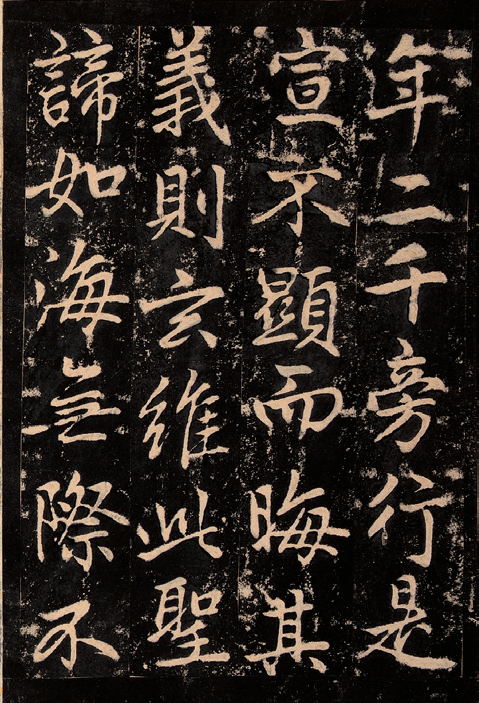 年二千旁行是
宣不顯而晦其
義則玄維此聖
諦如海無際不